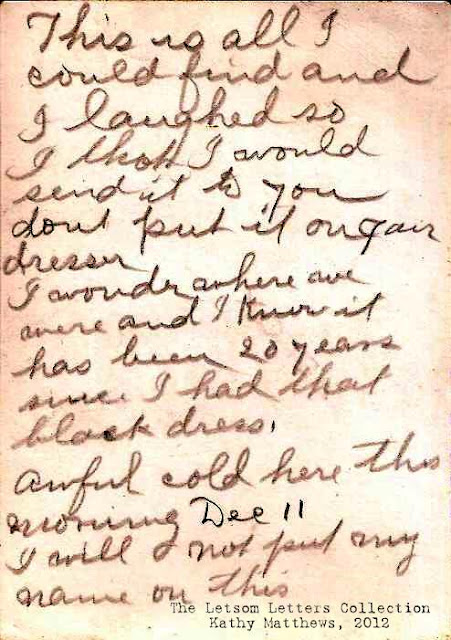 This is all I
could find and
I laughed so
I thot I would
send it to you
dont put it on your
dresser
I wonder where we
were and I know it
has been 20 years
since I had that
black dress.
awful cold here this
morning Dec 11
I will not put my
name on this
The Letsom Letters Collection
Kathy Matthews, 2012